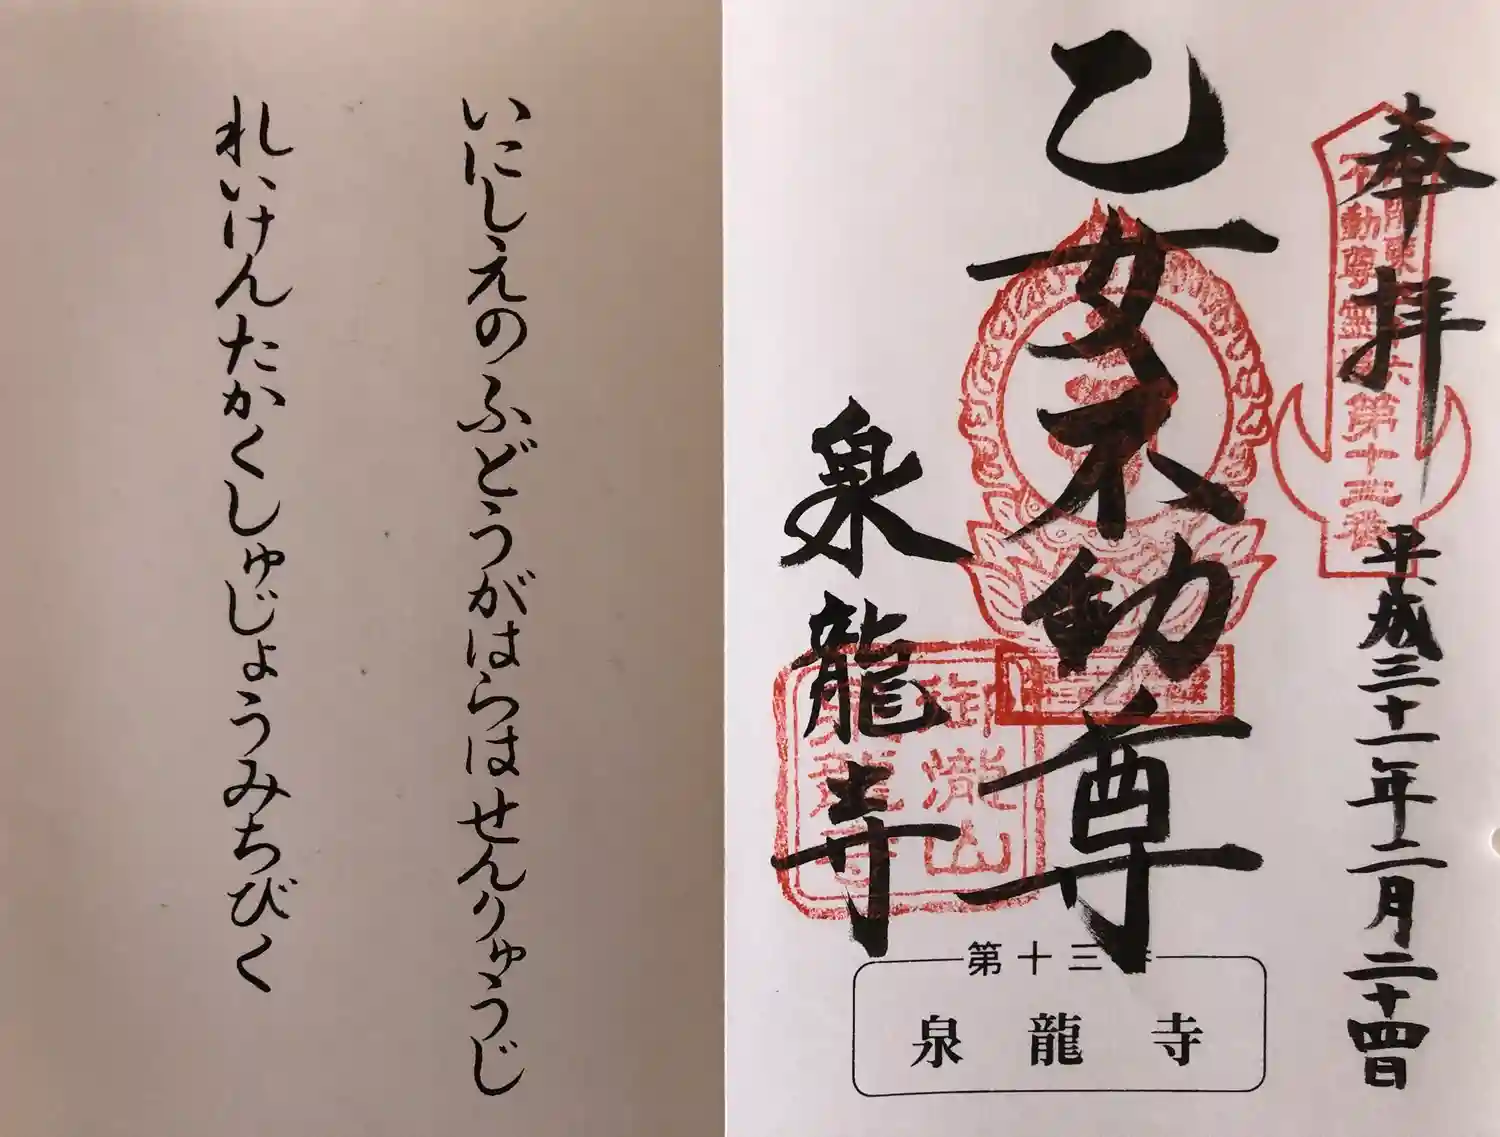 奉拝
平成三十一年二月二十四日
乙女不動尊
泉龍寺
御瀧山
泉龍寺
不動尊霊場
第十三番
第十三
泉龍寺
いにしえのふどうがはらはせんりゅうじ
れいけんたかくしゅじょうみちびく